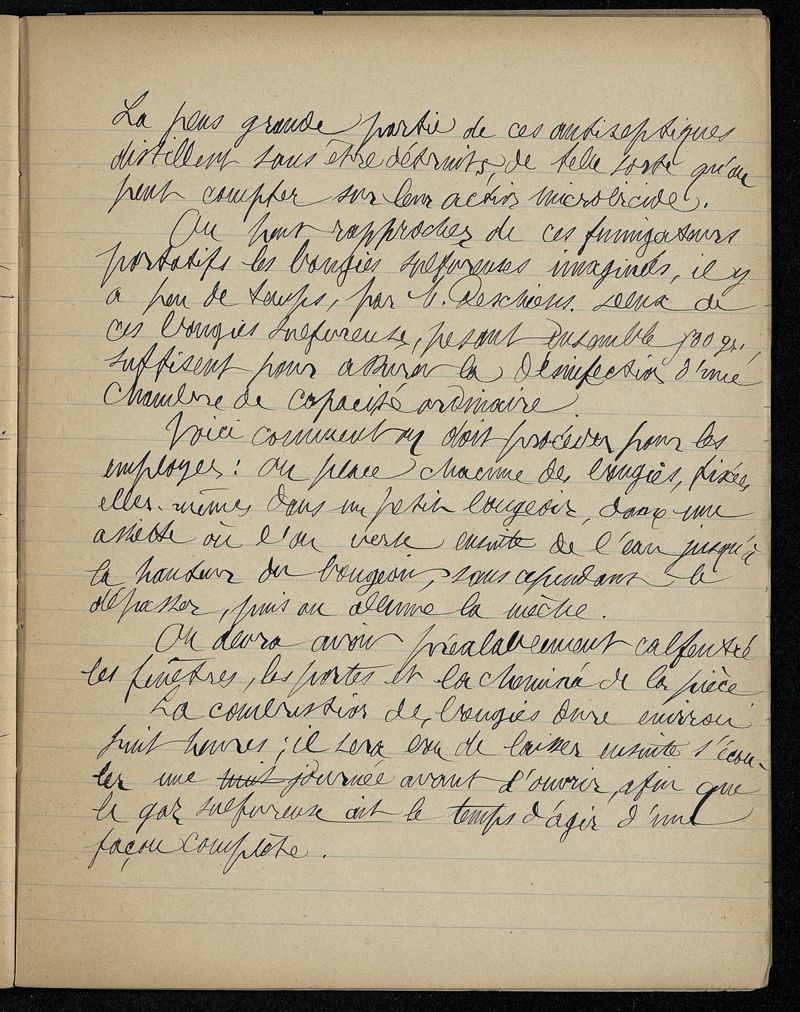 La plus grande partie de ces antiseptiques
distillent sans être détruits, de telle sorte qu'on
peut compter sur leur action microbicide.
On peut rapprocher de ces fumigateurs
portatifs les bougies sulfureuses imaginés, il y
a peu de temps, par M. Deschiens. Deux de
ces bougies sulfureuse, pesant ensemble 500 gr.,
suffisent pour assurer la désinfection d'une
chambre de capacité ordinaire.
Voici comment on doit procéder pour les
employer : on place chacune des bougies, fixées
elles-mêmes dans un petit bougeoir, dans une
assiette où l'on verse ensuite de l'eau jusqu'à
la hauteur du bougeoir, sans cependant le
dépasser, puis on allume la mèche.
On devra avoir préalablement calfeutré
les fenêtres, les portes et la cheminé de la pièce
La combustion des bougies dure environ
huit heures ; il sera bon de laisser ensuite s'écou-
ler une nuit journée avant d'ouvrir, afin que
le gaz sulfureuse ait le temps d'agir d'une
façon complète.